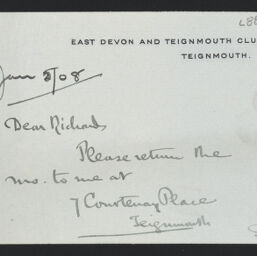 EAST DEVON AND TEIGNMOUTH CLU
TEIGNMOUTH.
Jan 8/08
Dear Richards
Please return the
mo. to me at
7 Courtenay Place
Teignmouth